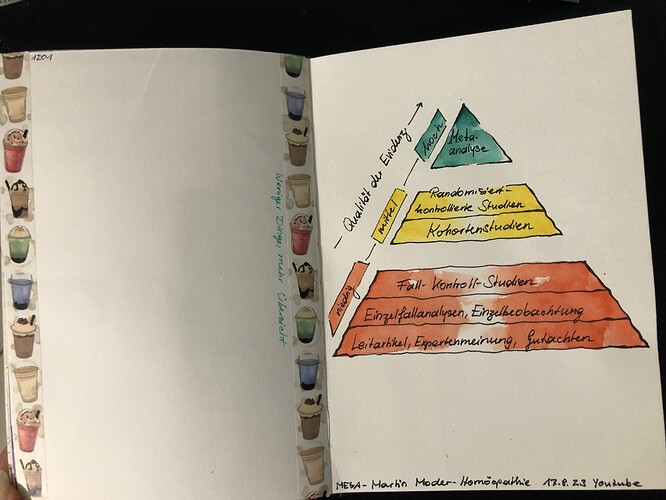 1201
Wenig Dinge, mehr Übersicht
Qualität der Evidenz
hoch
mittel
niedrig
Meta-
analyse
Randomisiert-
kontrollierte Studien
Kohortenstudien
Fall-Kontroll-Studien
Einzelfallanalysen, Einzelbeobachtung
Leitartikel, Expertenmeinung, Gutachten
MEGA-Martin Moder-Homöopathie 17.8.23 Youtube